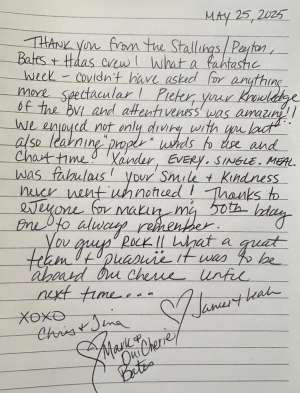 MAY 25, 2025
THANK you from the Stallings/Peyton,
Bates + Haas crew! What a fantastic
week - couldn't have asked for anything
more spectacular! Pieter, your knowledge
of the BVI and attentiveness was amazing!!
We enjoyed not only diving with you but
also learning "proper" words to use and
chart time! Xander, EVERY. SINGLE. MEAL.
was fabulous! Your smile + kindness
never went unnoticed! Thanks to
everyone for making my 50th bday
one to always remember.
You guys ROCK!! What a great
team + pleasure it was to be
aboard Oui Cherie until
next time...
XOXO
Chris + Tina
James + Leah
Mark +
Oui Cherie
Bates